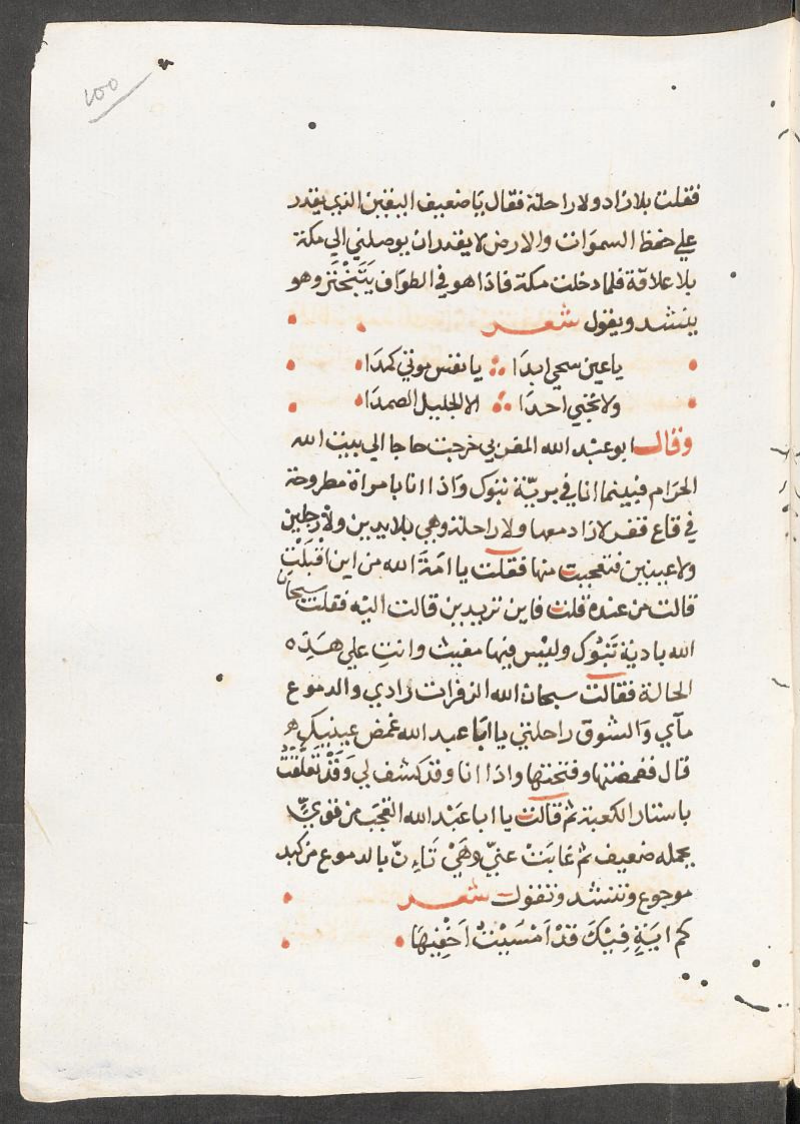 100
فقلت بلا زاد ولا راحلة فقال يا ضعيف اليقين الذي يقدر
علي حفظ السموات والارض لا يقدر ان يوصلني الي مكة
بلا علاقة فلما دخلت مكة فاذا هو في الطواف يَتَبَخْتَر وهو
ينشد ويقول شعر
يا عين سحي ابدًا يا نفس موتي كمدَا
ولا تحبي احدَا الا الجليل الصمدَا
وقال ابو عبد الله المغربي خرجت حاجا الي بيت الله
الحرام فبينما انا في بريّة تبوك واذا انا بامراة مطروحة
في قاع قفر لا زاد معها ولا راحلة وهي بلا يدين ولا رجلين
ولا عينين فتعجبت منها فقلت يا امَةَ الله من اين اقْبَلْتِ
قالت من عنده قلت فاين تريدين قالت اليه فقلت سبحان
الله بادية تَبُوك وليْس فيها مغيث وانتِ علي هَذِه
الحالة فقالت سبحان الله الزفرات زادي والدموع
مآي وَالشوق راحلتي يا ابَا عبد الله غمض عينيك
قال فغمضتها وفتحتها واذا انا وقد كشف لي وَقَدْ تَعَلَّقَتْ
باستار الكعبة ثم قالت يا ابا عَبْد الله اتعْجَب من قويّ
يحمله ضعيف ثم غابَتْ عنيّ وهَيْ تَاءِنّ بالدموع من كبد
موجوع وتنشد وتقول شعر
كم ايَةٍ فِيْكَ قَدْ اَمْسَيْتُ اُخْفِيْهَا